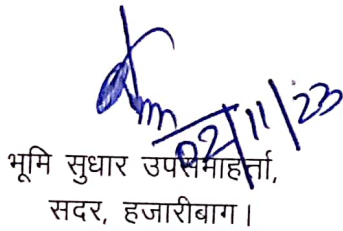 02/11/23
भूमि सुधार उपसमाहर्ता,
सदर, हजारीबाग।